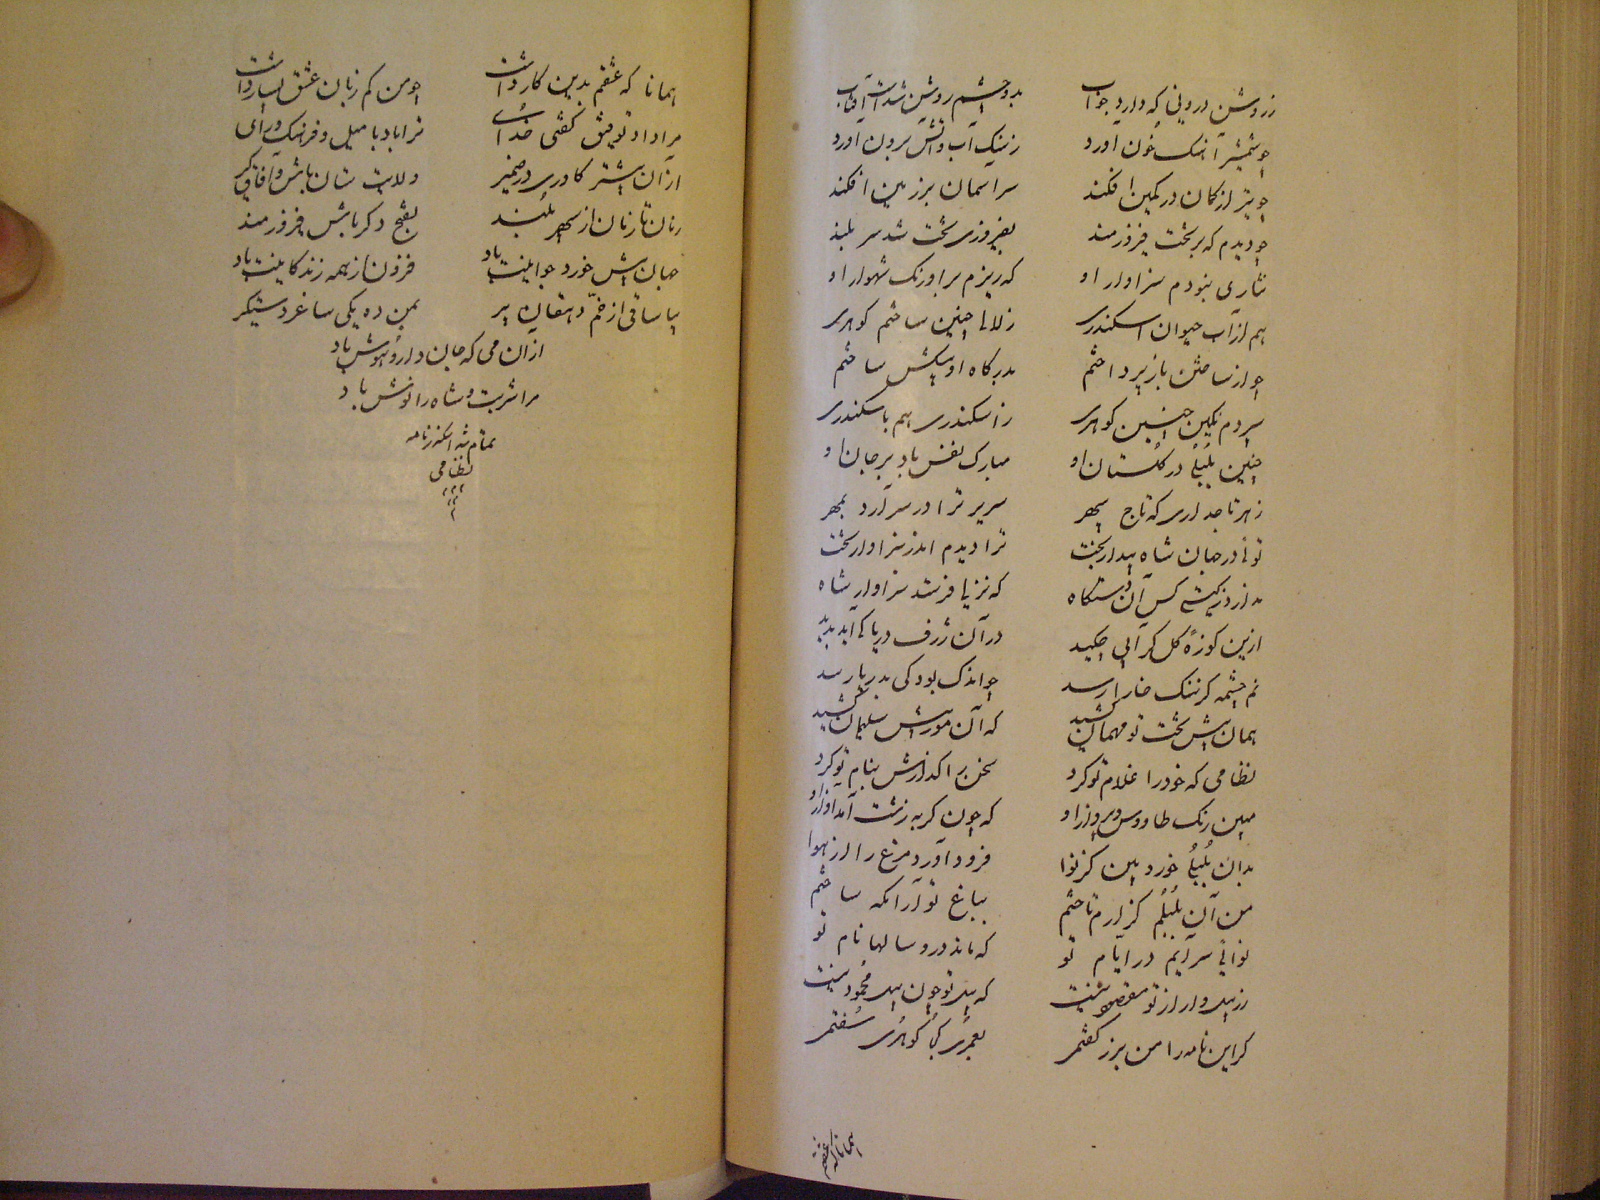 ز روشن درونی که دارد جواب بدو چشم روشن شدست آفتاب
چو شمشیر آهنگ خون آورد ز سنگ آب و آتش برون آورد
چو تیر از کمان در کمین افکند سر آسمان بر زمین افکند
چو دیدم که بر تخت فیروزمند بفیروزی تخت شد سر بلند
نثاری نبودم سزاوار او که ریزم بر اورنگ شهوار او
هم از آب حیوان اسکندری زلالی چنین ساختم گوهری
چو از ساختن باز پرداختم بدرگاه او پیشکش ساختم
سپردم نگین چنین گوهری ز اسکندری هم باسکندری
چنین بلبلی در گلستان او مبارک نفس باد بر جان او
زهر تاجداری که تاج سپهر سریر ترا در سر آرد بمهر
توئی در جهان شاه بیدار بخت ترا دیدم اندر سزاوار تخت
ندارد ز گیتی کس آن دستگاه که نزلی فرستد سزاوار شاه
ازین کوزهٔ گل گر آبی چکید در آن ژرف دریا کی آید پدید
نم چشمه کز سنگ خارا رسد چو اندک بود کی بدریا رسد
همان پیش تخت تو مهمان کشید که آن مور پیش سلیمان کشید
نظامی که خود را غلام تو کرد سخن را گذارش بنام تو کرد
مبین رنگ طاووس و پرواز او که چون گربه زشت آمد آواز او
بدان بلبل خرد بین کز نوا فرود آورد مرغ را از هوا
من آن بلبلم کز ارم تاختم بباغ تو آرامگه ساختم
نوائی سرایم در ایام تو که ماند درو سالها نام تو
زر پیلوار از تو مقصود نیست که پیل تو چون پیل محمود نیست
گر این نامه را من بزر گفتمی بعمری کجا گوهری سفتمی
همانا که عشقم
همانا که عشقم بدین کار داشت چو من کم زنان عشق بسیار داشت
مرا داد توفیق گفتن خدای ترا باد با میل و فرهنگ و رای
از آن بیشتر کاوری در ضمیر ولایت ستان باش و آفاق گیر
زمان تا زمان از سپهر بلند بفتح دگر باش فیروزمند
جهان پیش خورد جوانیت باد فزون از همه زندگانیت باد
بیا ساقی از خم دهقان پیر بمن ده یکی ساغر دستگیر
از آن می که جان داروی هوش باد
مرا شربت و شاه را نوش باد
تمام شد اسکندرنامه
نظامی